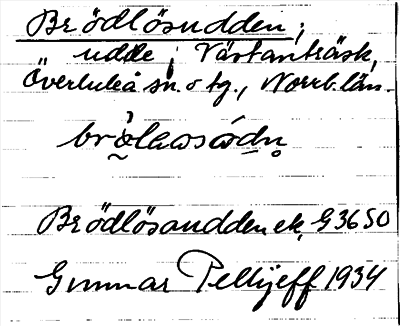 Brödlösudden,
udde i Västanträsk,
Överluleå sn. o tg., Norrb. län.
Brödlösaudden ek. G 36 SO
Gunnar Pellijeff 1934